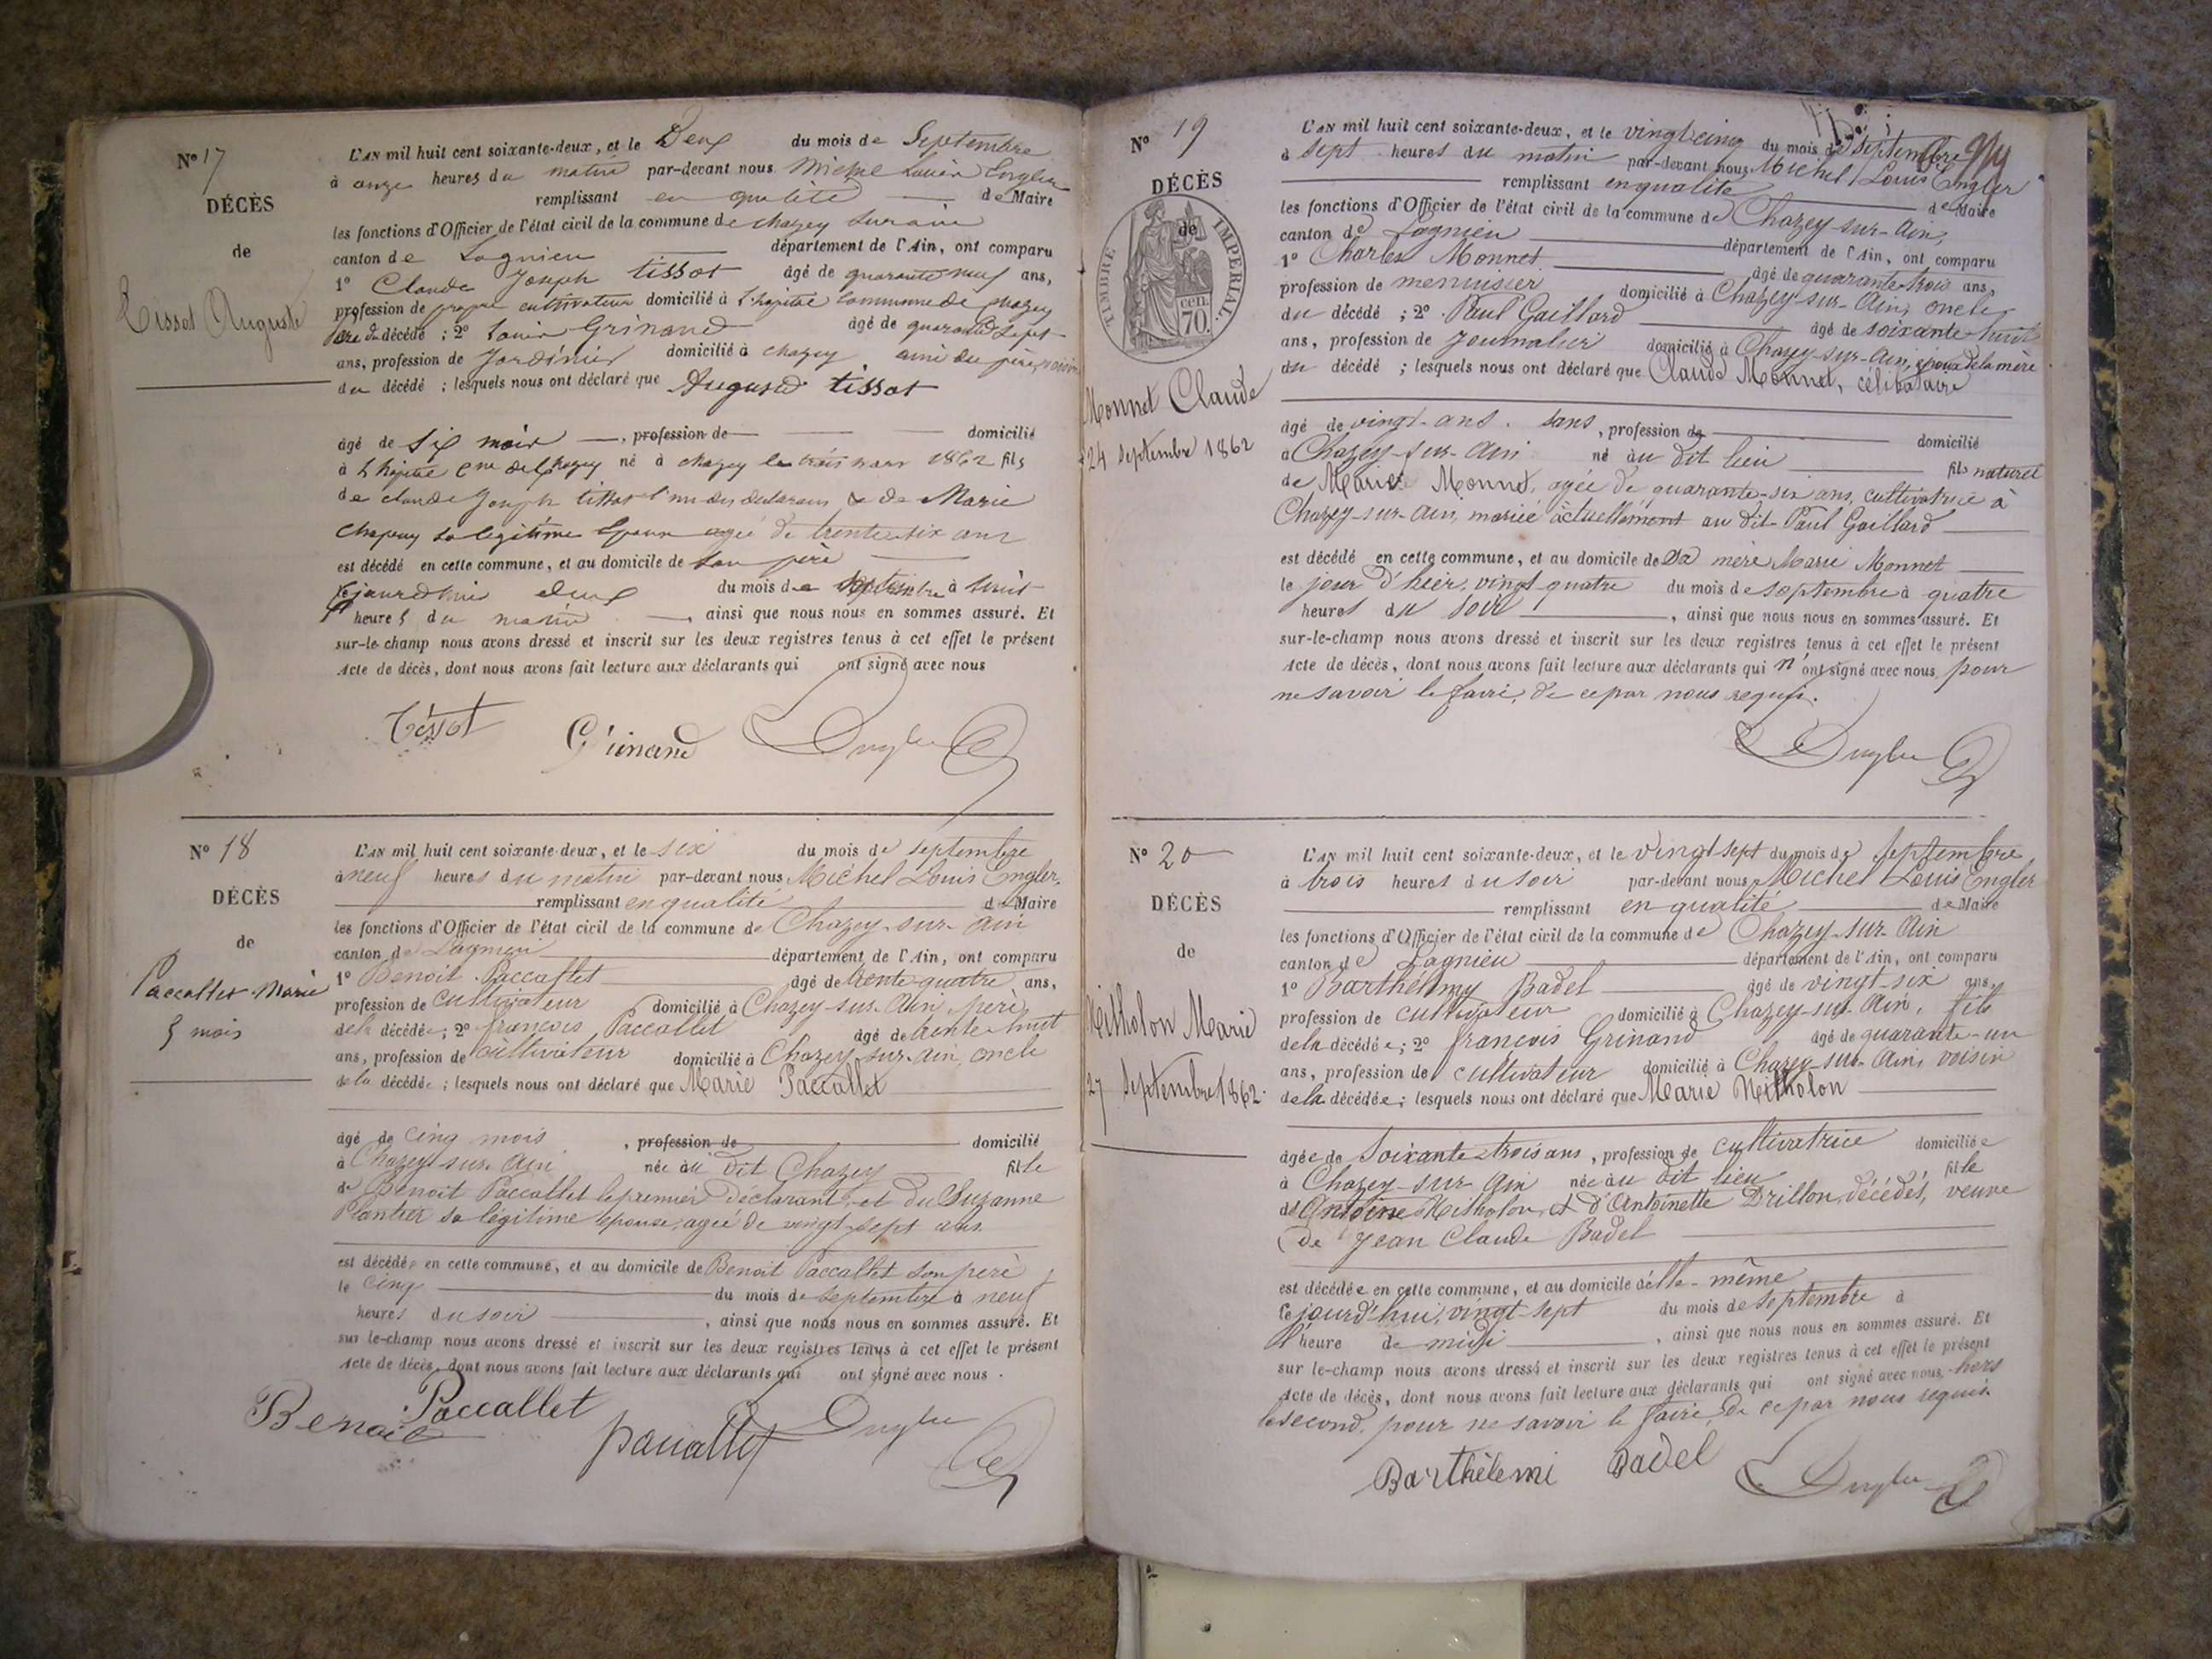 N° 17
DÉCÈS
de
Tissot Auguste
L'AN mil huit cent soixante-deux, et le Deux du mois de Septembre
à onze heures du matin par-devant nous Michel Louis Engler
remplissant en qualité de Maire
les fonctions d'Officier de l'état civil de la commune de chazey sur ain
canton de Lagnieu département de l'Ain, ont comparu
1° Claude Joseph tissot âgé de quarante neuf ans,
profession de propre cultivateur domicilié à L'hopital Commune de chazey
père du décédé ; 2° Louis Grinand âgé de quarante sept
ans, profession de Jardinier domicilié à chazey ami du père, voisin
du décédé ; lesquels nous ont déclaré que Auguste tissot
âgé de six mois , profession de domicilié
à L'hopital Cne de Chazey né à chazey le trois mars 1862 fils
de claude Joseph tissot l'un des déclarans & de Marie
Chapuy sa légitime Epouse agée de trente six ans
est décédé en cette commune, et au domicile de son père
cejourdhui deux du mois de septembre à huit
heures du matin , ainsi que nous nous en sommes assuré. Et
sur-le-champ nous avons dressé et inscrit sur les deux registres tenus à cet effet le présent
Acte de décès, dont nous avons fait lecture aux déclarants qui ont signé avec nous
Tissot Grinand Engler
N° 18
DÉCÈS
de
Paccallet Marie
5 mois
L'AN mil huit cent soixante-deux, et le six du mois de septembre
à neuf heures du matin par-devant nous Michel Louis Engler,
remplissant en qualité de Maire
les fonctions d'Officier de l'état civil de la commune de Chazey-sur-Ain
canton de Lagnieu département de l'Ain, ont comparu
1° Benoit Paccallet âgé de trente-quatre ans,
profession de cultivateur domicilié à Chazey-sur-Ain, père
de la décédée ; 2° françois Paccallet âgé de trente-huit
ans, profession de cultivateur domicilié à Chazey-sur-Ain, oncle
de la décédée ; lesquels nous ont déclaré que Marie Paccallet
âgé de cinq mois , profession de domicilié
à Chazey-sur-Ain née au dit Chazey fille
de Benoit Paccallet le premier déclarant, et du Suzanne
Plantier sa légitime épouse, agée de vingt-sept ans.
est décédée en cette commune, et au domicile de Benoit Paccallet son père
le cinq du mois de septembre à neuf
heures du soir , ainsi que nous nous en sommes assuré. Et
sur le-champ nous avons dressé et inscrit sur les deux registres tenus à cet effet le présent
Acte de décès, dont nous avons fait lecture aux déclarants qui ont signé avec nous .
Benoit Paccallet paccallet Engler
N° 19
DÉCÈS
de
TIMBRE IMPÉRIAL.
70 cen.
Monnet Claude
24 septembre 1862
L'AN mil huit cent soixante-deux, et le vingt cinq du mois de septembre
à sept heures du matin par-devant nous Michel Louis Engler
remplissant en qualité de Maire
les fonctions d'Officier de l'état civil de la commune de Chazey-sur-Ain,
canton de Lagnieu département de l'Ain, ont comparu
1° Charles Monnet âgé de quarante-trois ans,
profession de menuisier domicilié à Chazey-sur-Ain, oncle
du décédé ; 2° Paul Gaillard âgé de soixante-huit
ans, profession de Journalier domicilié à Chazey-sur-Ain, époux de la mère
du décédé ; lesquels nous ont déclaré que Claude Monnet, célibataire
âgé de vingt-ans. sans , profession de domicilié
à Chazey-sur-Ain né au dit lieu fils naturel
de Marie Monnet, agée de quarante-six ans, cultivatrice à
Chazey-sur-Ain, mariée actuellement au dit Paul Gaillard
est décédé en cette commune, et au domicile de sa mère Marie Monnet
le jour d'hier, vingt-quatre du mois de septembre à quatre
heures du soir , ainsi que nous nous en sommes assuré. Et
sur-le-champ nous avons dressé et inscrit sur les deux registres tenus à cet effet le présent
Acte de décès, dont nous avons fait lecture aux déclarants qui n'ont signé avec nous pour
ne savoir le faire, de ce par nous requis.
Engler
N° 20
DÉCÈS
de
Mitholon Marie
27 septembre 1862.
L'AN mil huit cent soixante-deux, et le vingt sept du mois de septembre
à trois heures du soir par-devant nous Michel Louis Engler
remplissant en qualité de Maire
les fonctions d'Officier de l'état civil de la commune de Chazey-sur Ain
canton de Lagnieu département de l'Ain, ont comparu
1° Barthélemy Badel âgé de vingt-six ans,
profession de cultivateur domicilié à Chazey-sur-Ain, fils
de la décédée ; 2° françois Grinand âgé de quarante-un
ans, profession de cultivateur domicilié à Chazey-sur-Ain, voisin
de la décédée ; lesquels nous ont déclaré que Marie Mitholon
âgée de Soixante-trois ans , profession de cultivatrice domiciliée
à Chazey-sur-Ain née au dit lieu fille
de Antoine Mitholon, et d'Antoinette Drillon, décédés, veuve
de Jean Claude Badel
est décédée en cette commune, et au domicile d'elle-même
cejourd'hui, vingt-sept du mois de septembre à
l'heure de midi , ainsi que nous nous en sommes assuré. Et
sur le-champ nous avons dressé et inscrit sur les deux registres tenus à cet effet le présent
Acte de décès, dont nous avons fait lecture aux déclarants qui ont signé avec nous, hors
le second, pour ne savoir le faire, de ce par nous requis.
Barthélemi Badel Engler